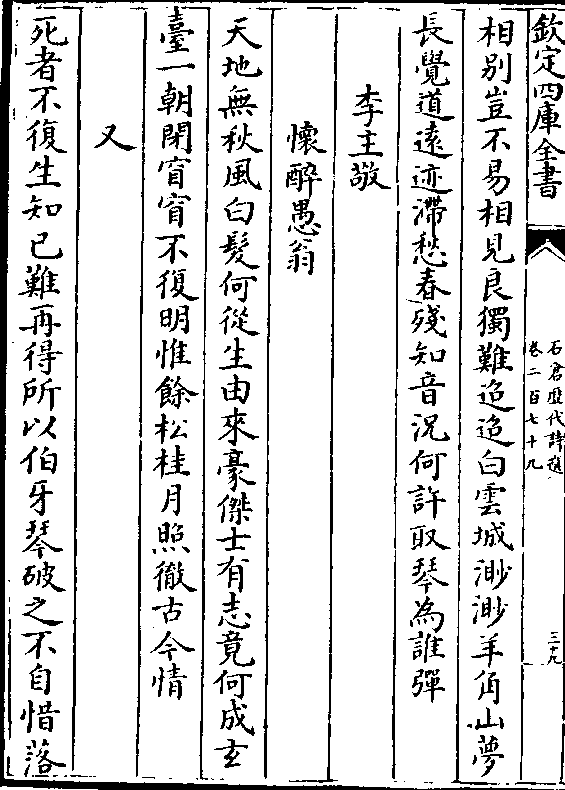 欽定四庫全書
石倉歷代詩選
卷二百七十九
三十九
相别豈不易相見良獨難迢迢白雲城渺渺羊角山夢
長覺道遠迹滯愁春殘知音況何許取琴為誰彈
李主敬
懷醉愚翁
天地無秋風白髮何從生由來豪傑士有志竟何成玄
臺一朝閉窅窅不復明惟餘松桂月照徹古今情
又
死者不復生知己難再得所以伯牙琴破之不自惜落